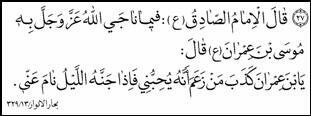 (٢٧) قَالَ الْإِمَامُ الصَّادِقُ (ع): فِيمَا نَاجَي اللهُ عَزَّ وَجَلَّ بِهِ
مُوسَى بْنَ عِمْرَانَ (ع) قَالَ:
يَا بْنَ عِمْرَانَ كَذَبَ مَنْ زَعَمَ أَنَّهُ يُحِبُّنِي فَإِذَا جَنَّهُ اللَّيْلُ نَامَ عَنِّي.
بحار الانوار ٣٢٩/١٣